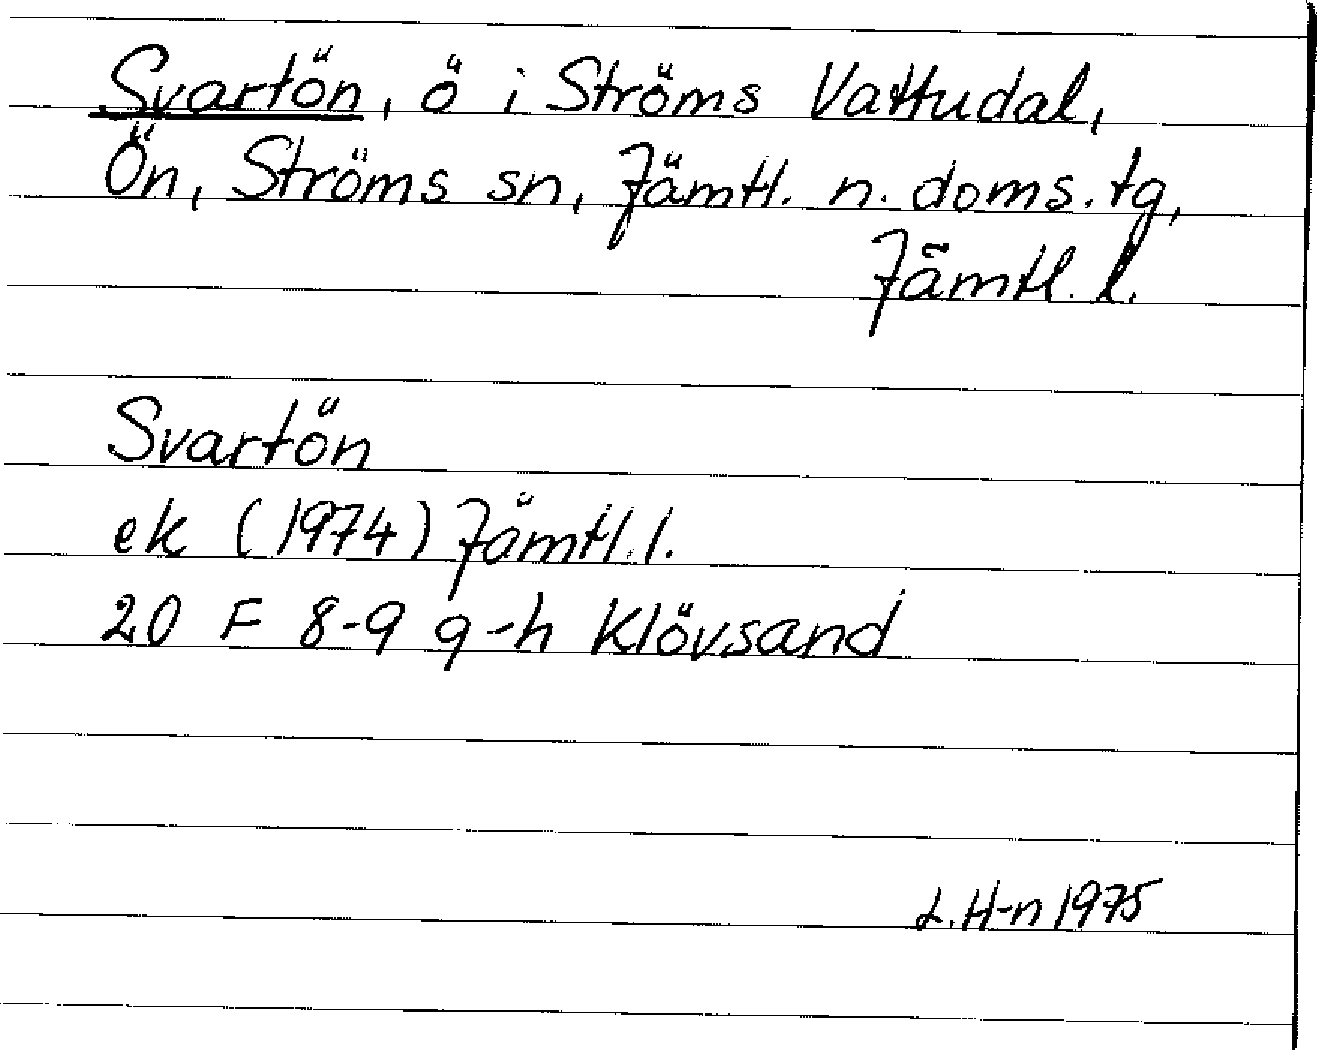 Svartön, ö i Ströms Vattudal,
Ön, Ströms sn, Jämtl. n. doms. tg,
Jämtl. l.
Svartön
ek (1974) Jämtl. l.
20 F 8-9 g-h Klövsand
L. H-n 1975